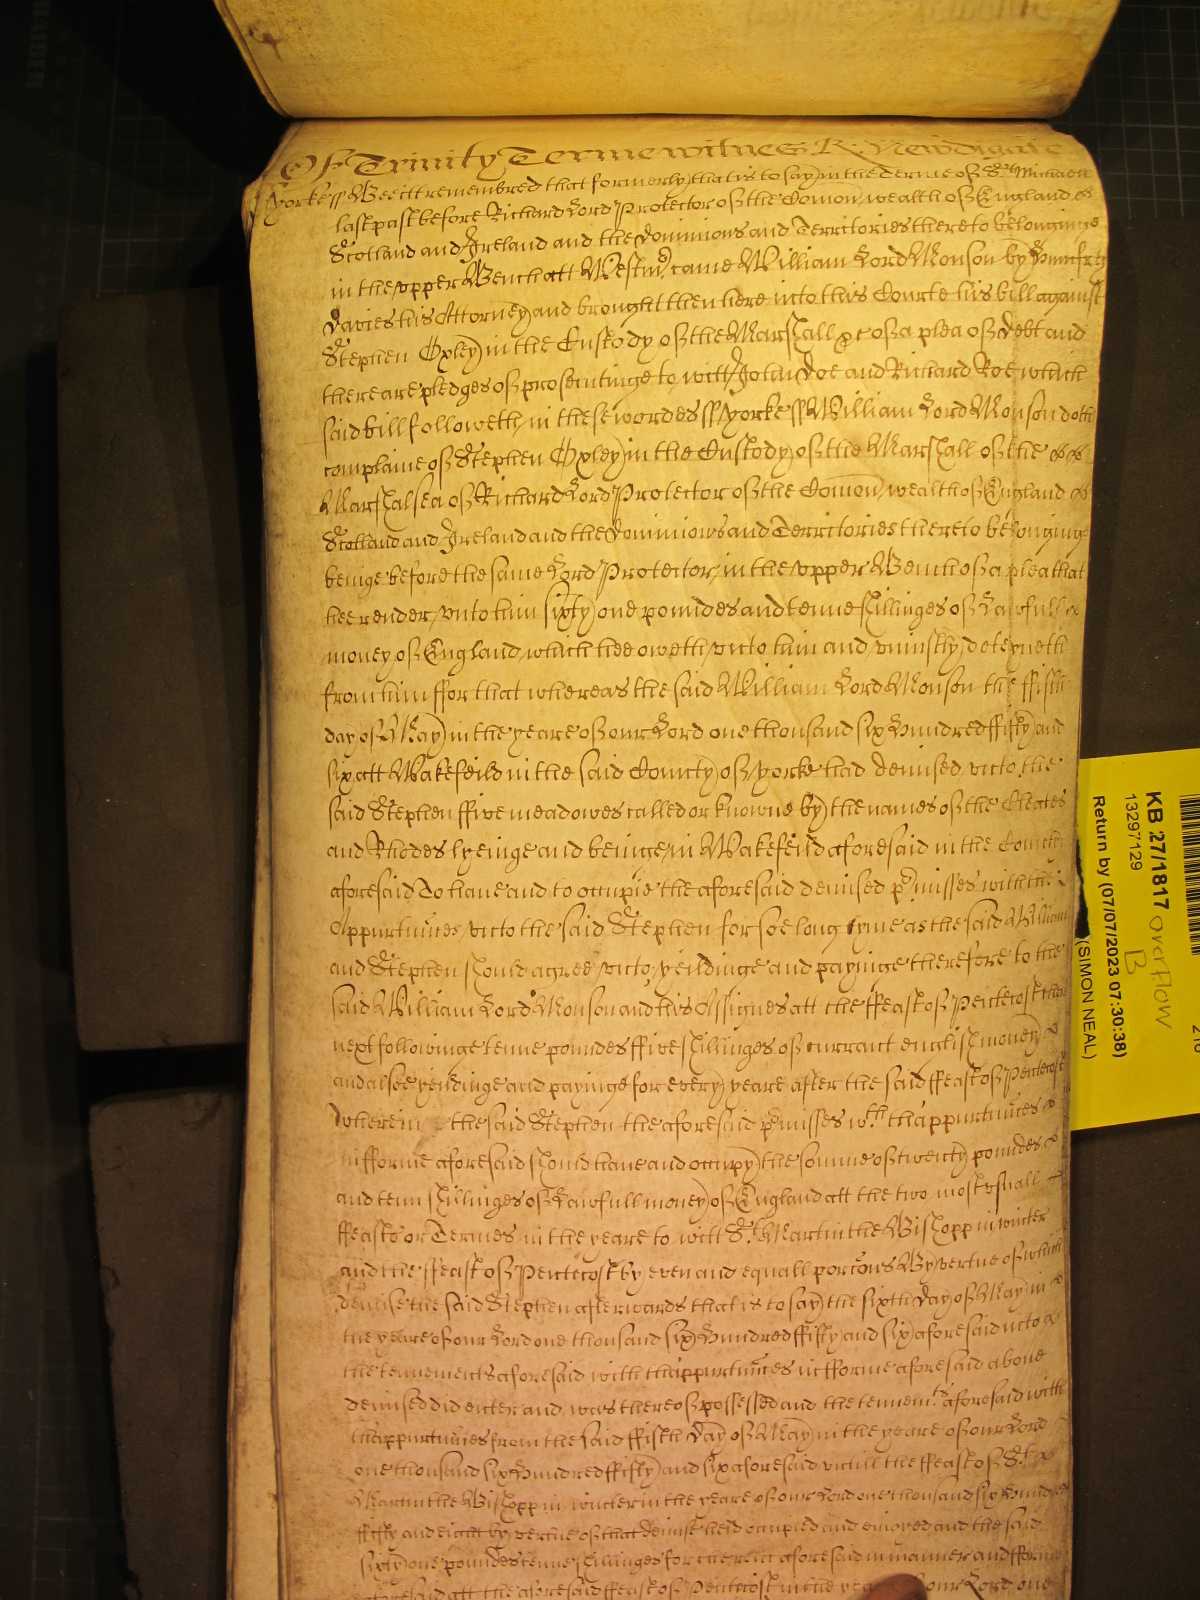 Of Trinity Terme witnes R. Newdigate
Yorke ss Bee itt remembred that formerly that is to say in the terme of St. Michaell
last past before Richard Lord Protector of the Comon wealth of England &
Scotland and Ireland and the Dominions and Territories thereto belonginge
in the vpper Bench att Westmr came William Lord Monson by Humfry
Davies his Attorney and brought then here into this Courte his bill against
Stephen Oxley in the Custody of the Marshall &c of a plea of debt and
there are pledges of prosecutinge to witt John Doe and Richard Roe which
said bill followeth in these wordes ss Yorke ss William Lord Monson doth
complaine of Stephen Oxley in the Custody of the Marshall of the
Marshalsea of Richard Lord Protector of the Comon wealth of England
Scotland and Ireland and the Dominions and Territories thereto belonginge
beinge before the same Lord Protector in the vpper Bench of a plea that
hee render vnto him sixty one poundes and tenne shillinges of Lawfull
money of England which hee oweth vnto him and vniustly deteyneth
from him ffor that whereas the said William Lord Monson the ffifth
day of May in the yeare of our Lord one thousand six hundred ffifty and
six att Wakefeild in the said County of Yorke had demised vnto the
said Stephen ffive meadowes called or knowne by the names of the Cleates
and Rhodes lyeinge and beinge in Wakefeild aforesaid in the County
aforesaid To haue and to occupie the aforesaid demised pmisses with the
Appurtunces vnto the said Stephen for soe long tyme as the said William
and Stephen should agree vnto yeildinge and payinge therefore to the
said William Lord Monson and his Assignes att the ffeast of Pentecost then
next followinge tenne poundes ffive shillinges of currant english money
and alsoe yeildinge and payinge for every yeare after the said ffeast of Pentecost
wherein the said Stephen the aforesaid pmisses wth thappurtunces
in fforme aforesaid should haue and occupy the somme of twenty poundes
and tenn shillinges of Lawfull money of England att the two most vsuall
ffeasts or Termes in the yeare to witt St. Martin the Bishopp in winter
and the ffeast of Pentecost by even and equall porcons By vertue of which
demise the said Stephen afterwards that is to say the sixth day of May in
the yeare of our Lord one thousand six hundred ffifty and six aforesaid into
the tenements aforesaid with thappurtunces in fforme aforesaid aboue
demised did enter and was thereof possessed and the tennemts aforesaid with
thappurtunces from the said ffifth day of May in the yeare of our Lord
one thousand six hundred ffifty and six aforesaid vntill the ffeast of St.
Martin the Bishopp in winter in the yeare of our Lord one thousand six hundred
ffifty and eight by vertue of that demise held occupied and enioyed and the said
sixty one poundes tenne shillinges for the rent aforesaid in manner and fforme
aforesaid att the aforesaid ffeast of Pentecost in the our Lord one
KB 27/1817 overflow
13297129 B
Return by (07/07/2023 07:30:38)
(SIMON NEAL)